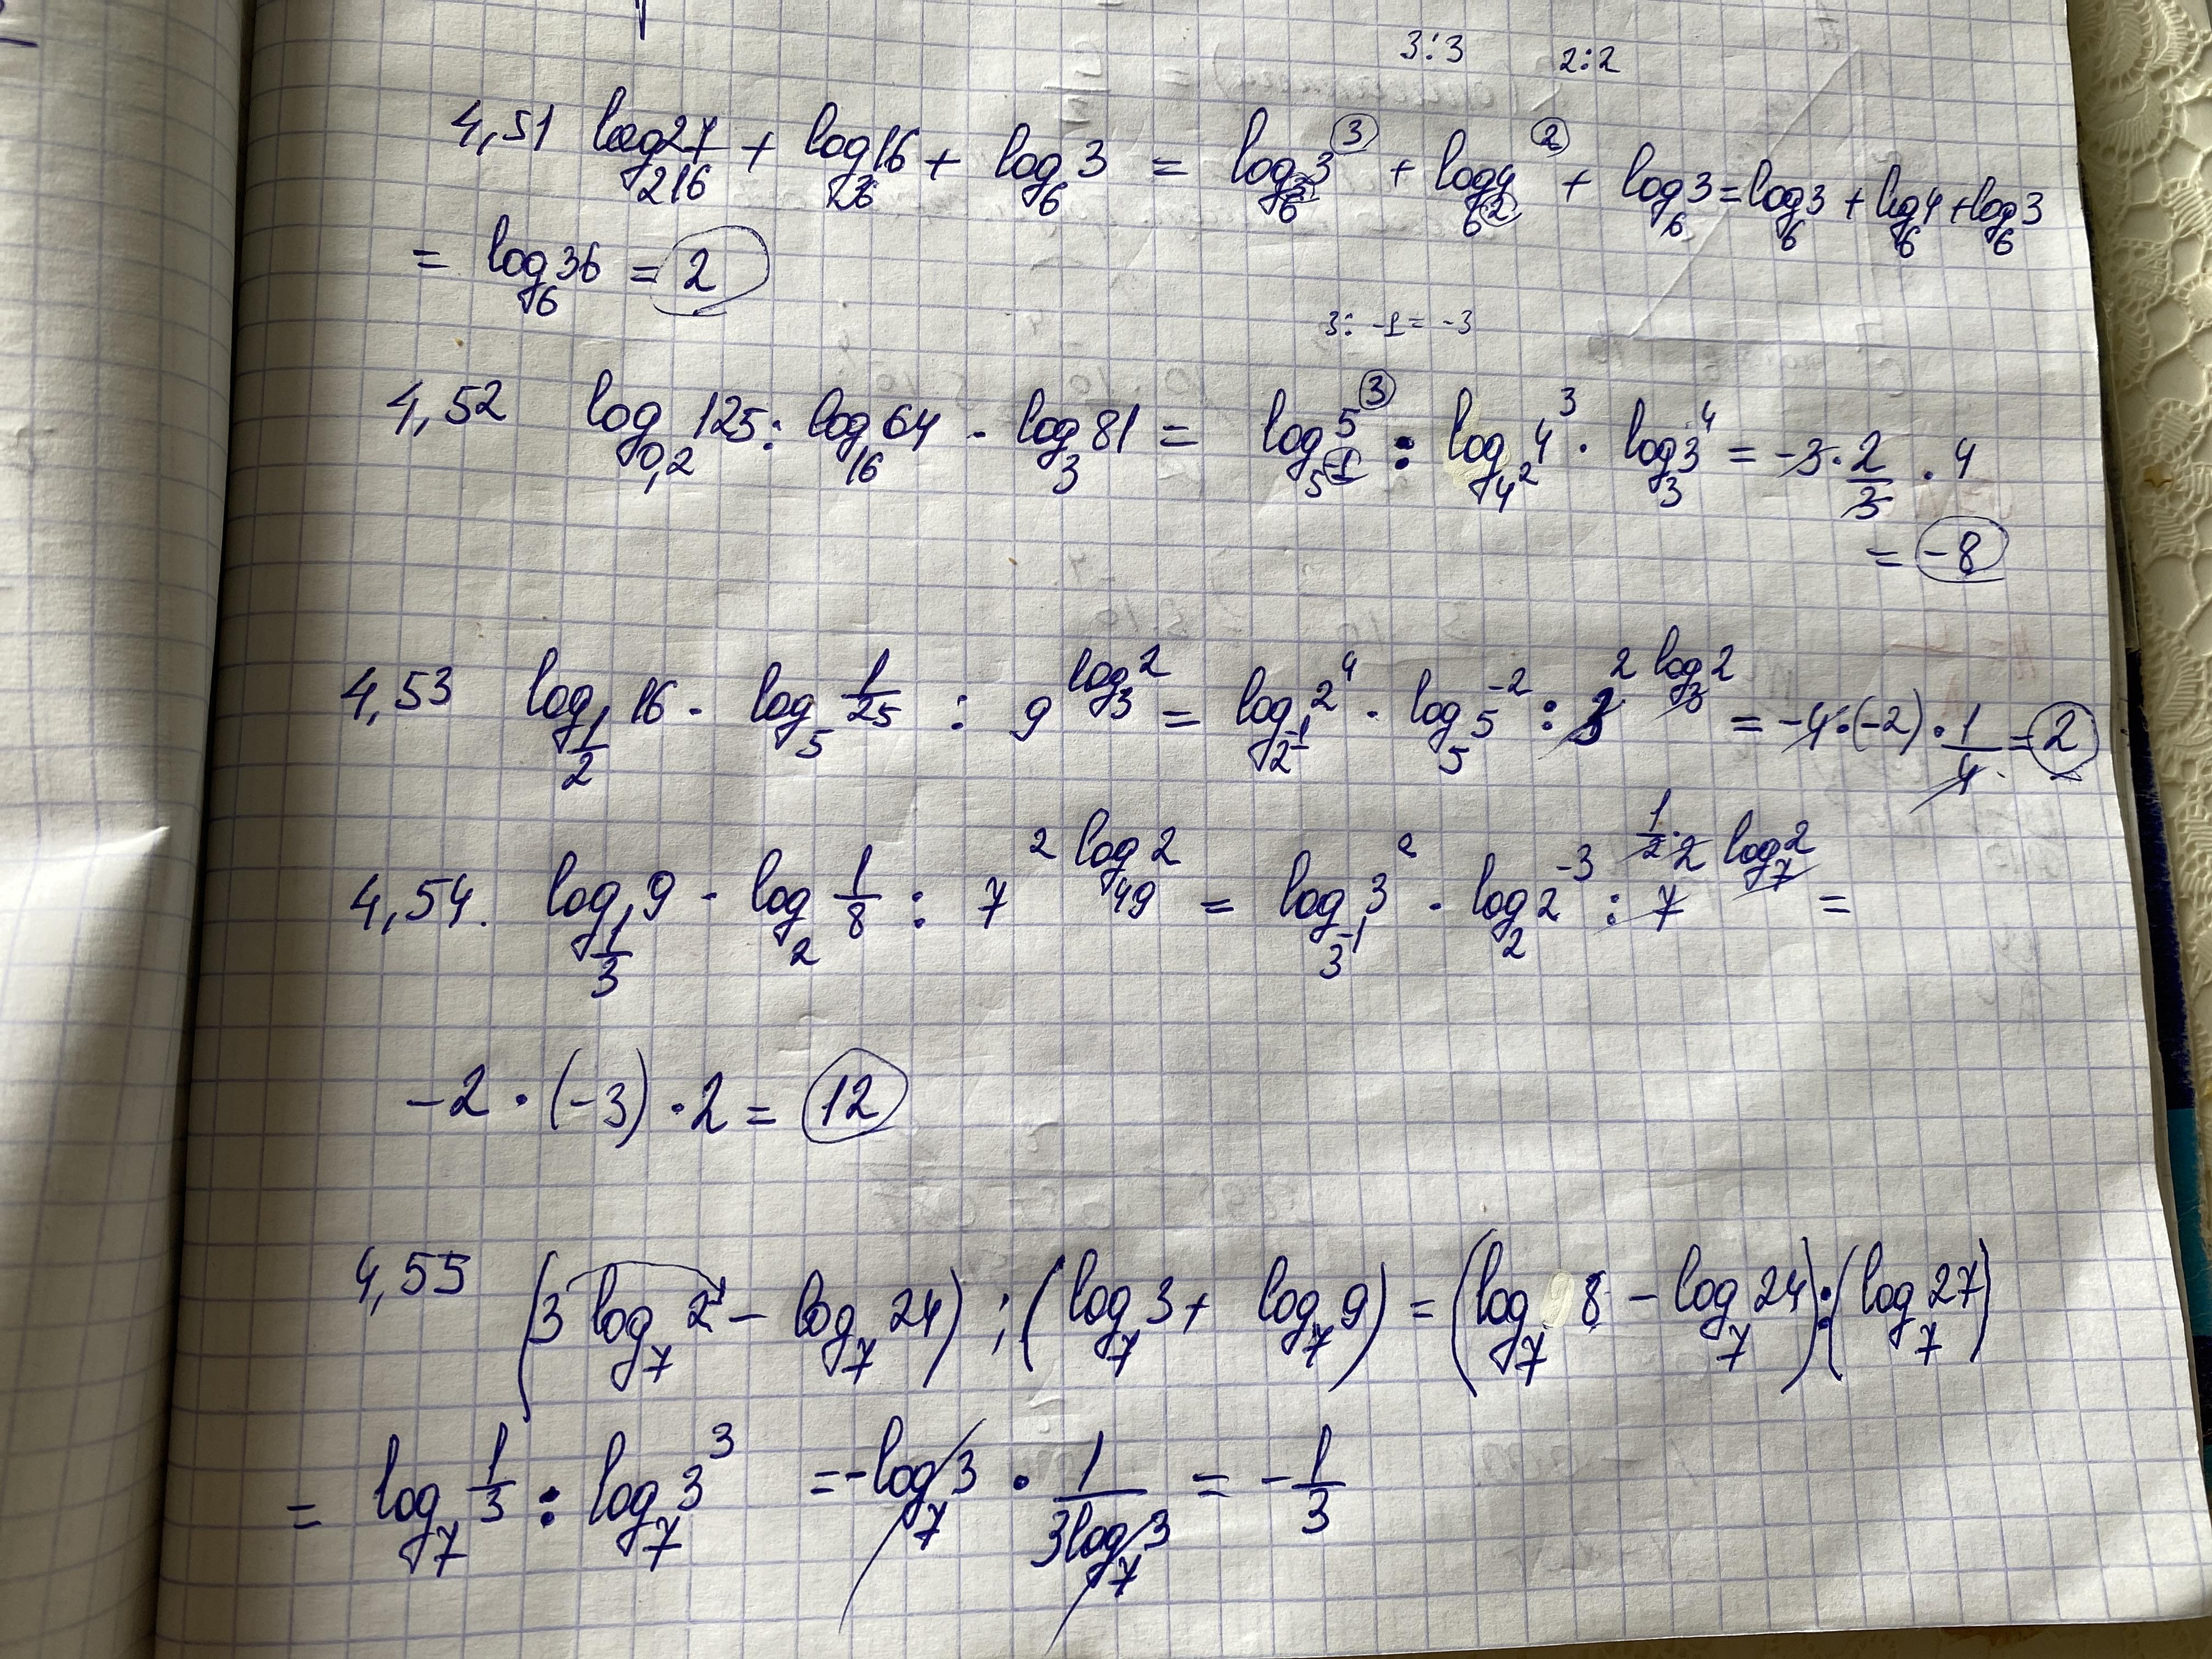 3:3 2:2
4,51 log₂₁₆27 + log₃₆16 + log₆3 = log₆³3³ + log₆²4² + log₆3 = log₆3 + log₆4 + log₆3
= log₆36 = 2
3: -1 = -3
4,52 log₀,₂125 : log₁₆64 · log₃81 = log₅⁻¹5³ : log₄²4³ · log₃3⁴ = -3 · 2/3 · 4
= -8
4,53 log_{1/2}16 · log₅ 1/25 : 9^{log₃2} = log_{2⁻¹}2⁴ · log₅5⁻² : 3^{2log₃2} = -4 · (-2) · 1/4 = 2
4,54. log_{1/3}9 · log₂ 1/8 : 7^{2log₄₉2} = log_{3⁻¹}3² · log₂2⁻³ : 7^{1/2·2log₇2} =
-2 · (-3) · 2 = 12
4,55 (3log₇2 - log₇24) : (log₇3 + log₇9) = (log₇8 - log₇24) : (log₇27)
= log₇ 1/3 : log₇3³ = -log₇3 · 1/3log₇3 = -1/3